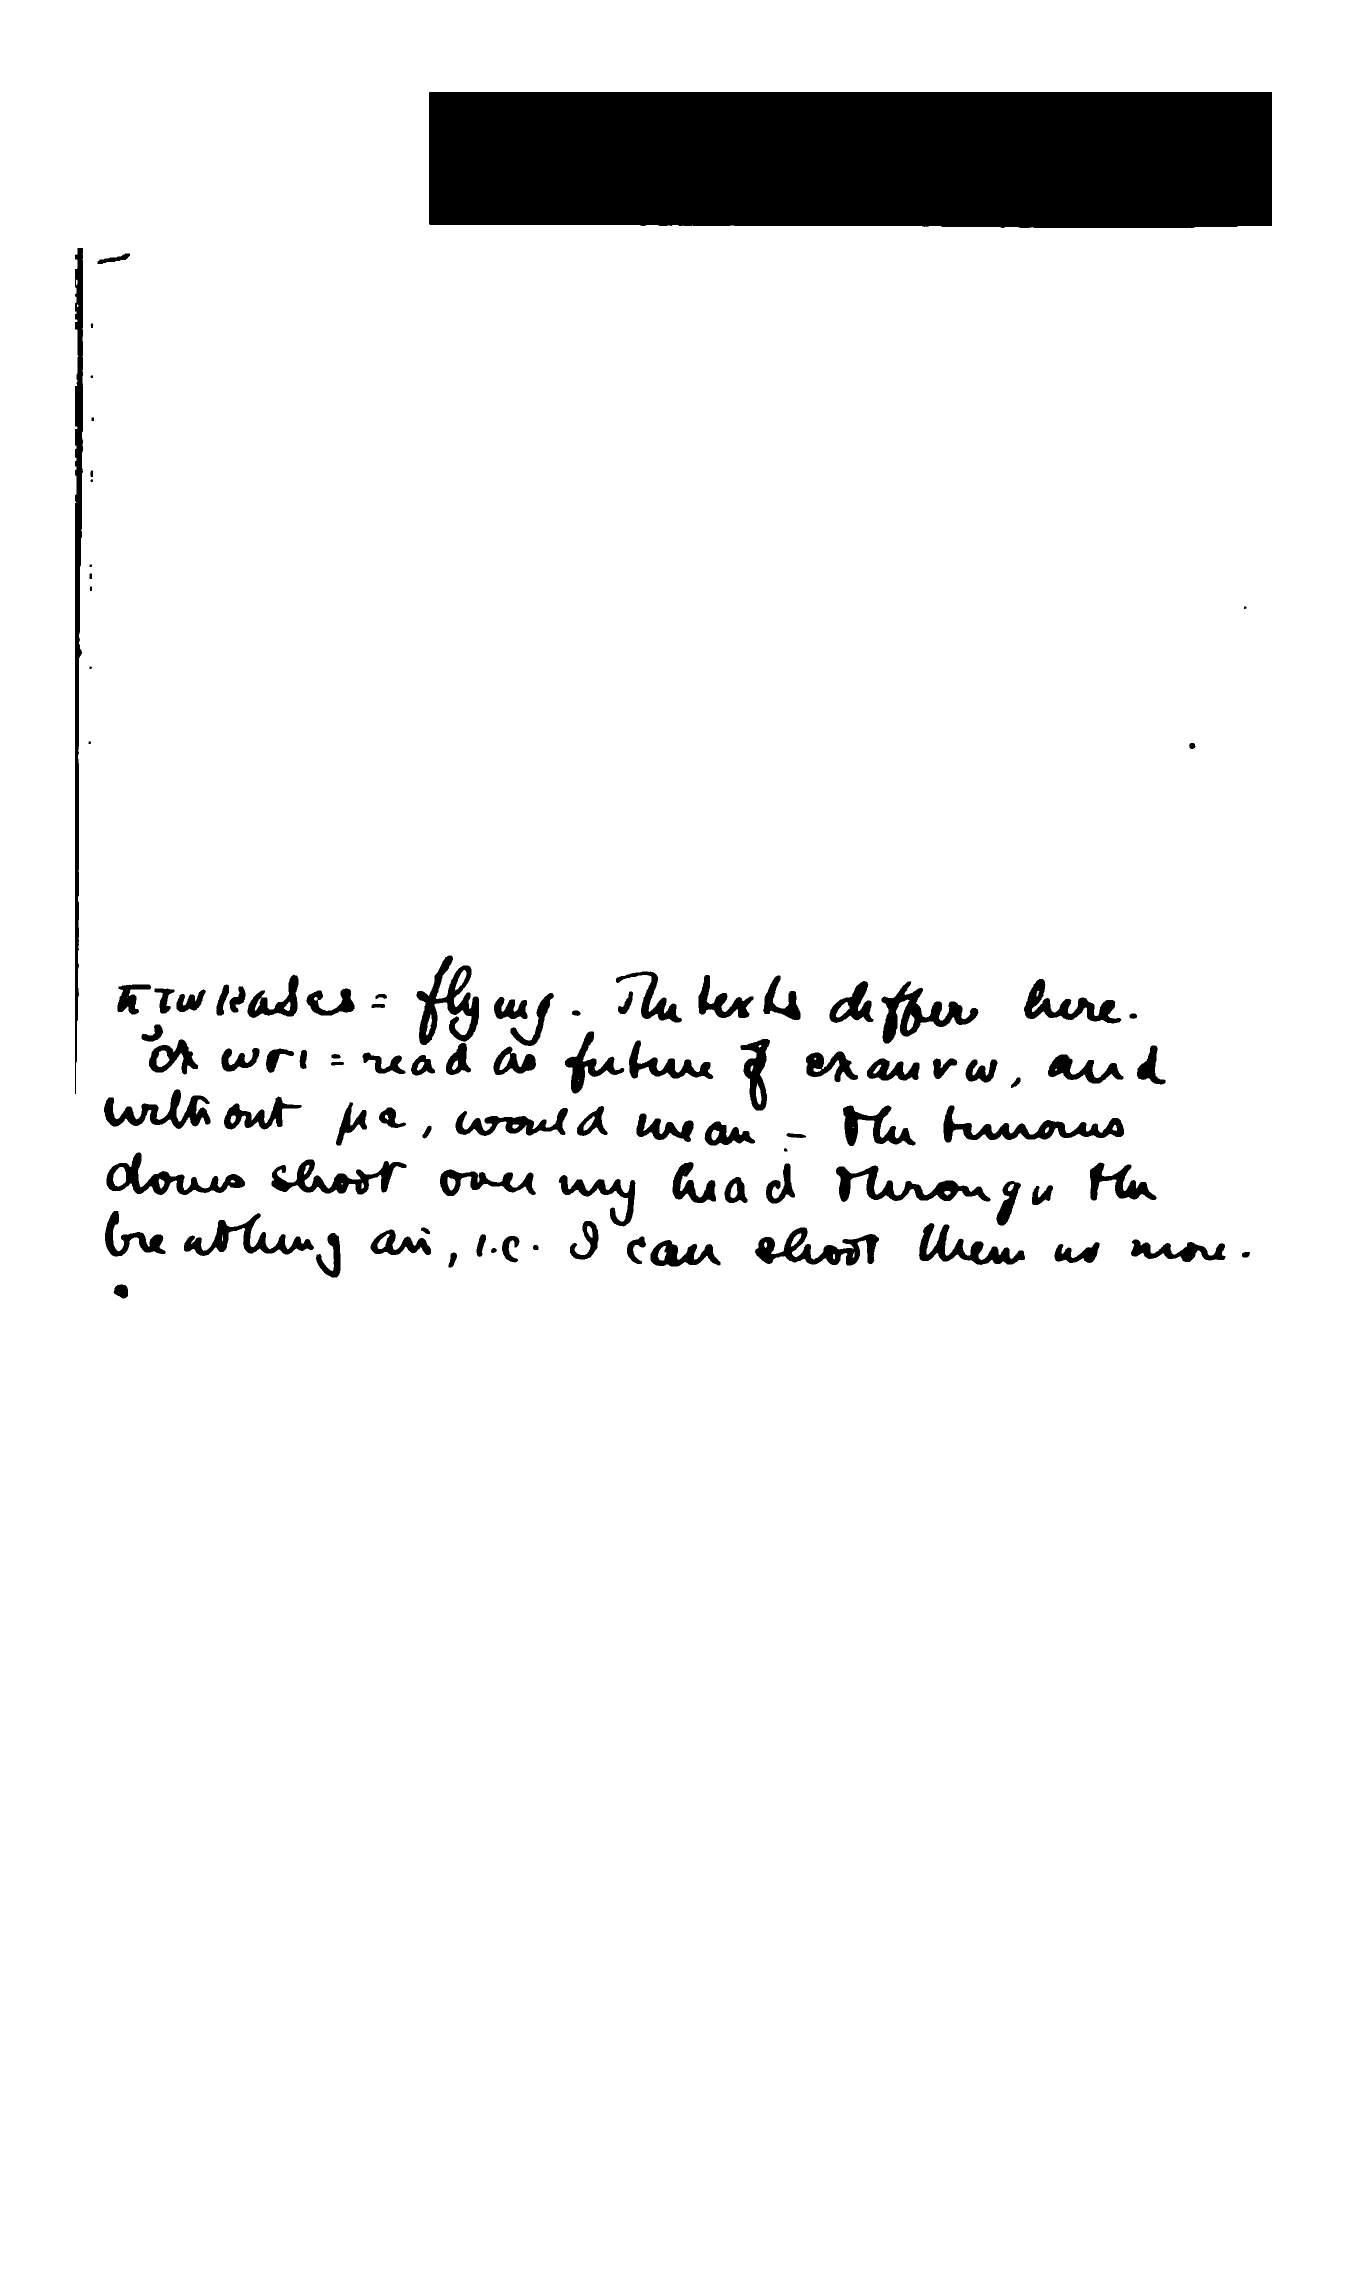 πτωκάδες = flying. The texts differ here.
ὀχ ωσι = read as future of εχαυνω, and
without με, would mean - the timorous
doves shoot over my head through the
breathing air, i.e. I can shoot them no more.